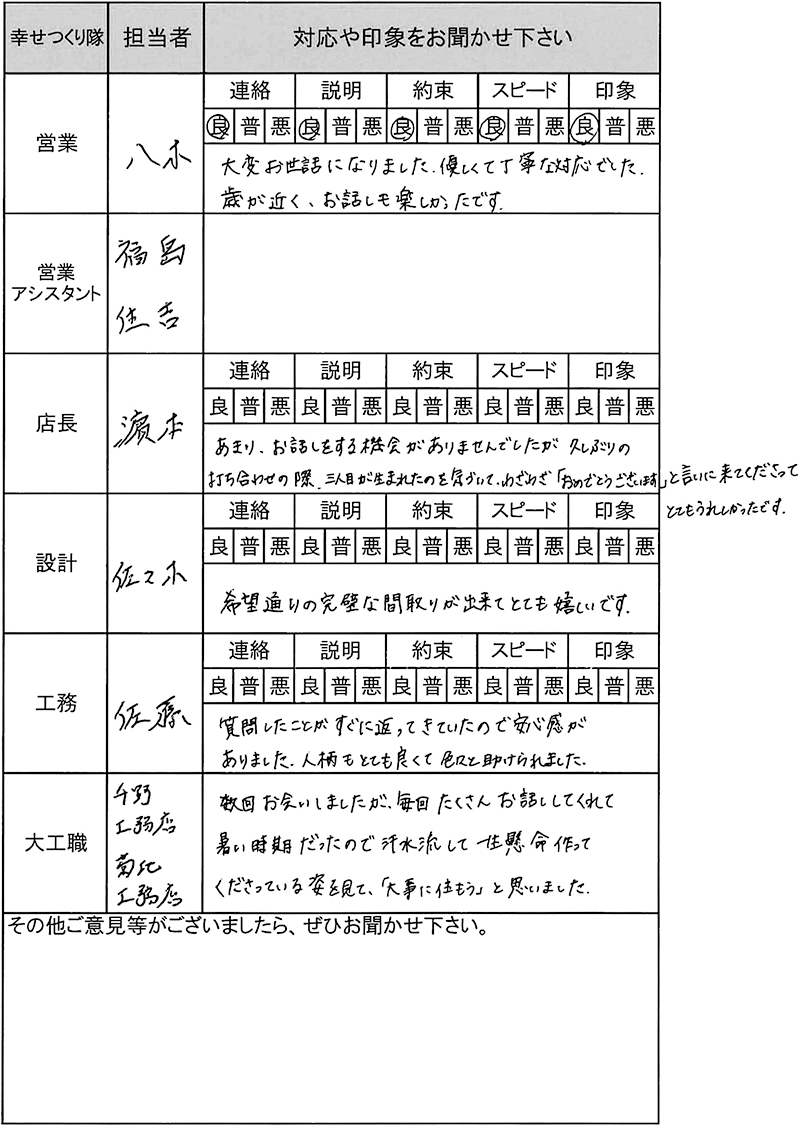 幸せつくり隊 担当者 対応や印象をお聞かせ下さい
営業 八木
連絡 説明 約束 スピード 印象
良 普 悪 良 普 悪 良 普 悪 良 普 悪 良 普 悪
大変お世話になりました。優しくて丁寧な対応でした。
歳が近く、お話しも楽しかったです。
営業
アシスタント
福島
住吉
店長 濱本
連絡 説明 約束 スピード 印象
良 普 悪 良 普 悪 良 普 悪 良 普 悪 良 普 悪
あまり、お話しをする機会がありませんでしたが 久しぶりの
打ち合わせの際、三人目が生まれたのを気づいて、わざわざ「おめでとうございます」と言いに来てくださって
とてもうれしかったです。
設計 佐々木
連絡 説明 約束 スピード 印象
良 普 悪 良 普 悪 良 普 悪 良 普 悪 良 普 悪
希望通りの完璧な間取りが出来てとても嬉しいです。
工務 佐藤
連絡 説明 約束 スピード 印象
良 普 悪 良 普 悪 良 普 悪 良 普 悪 良 普 悪
質問したことがすぐに返ってきていたので安心感が
ありました。人柄もとても良くて色々と助けられました。
大工職
千野
工務店
菊地
工務店
数回お会いしましたが、毎回たくさんお話ししてくれて
暑い時期だったので汗水流して一生懸命作って
くださっている姿を見て、「大事に住もう」と思いました。
その他ご意見等がございましたら、ぜひお聞かせ下さい。